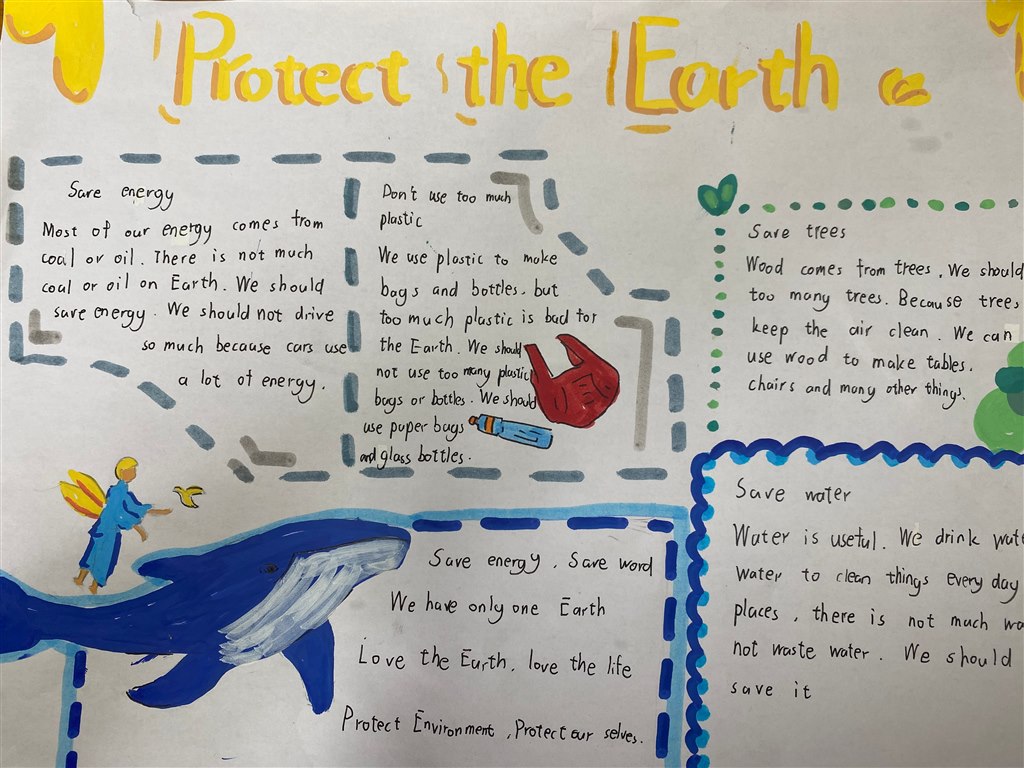 Protect the Earth
Save energy
Most of our energy comes from
coal or oil. There is not much
coal or oil on Earth. We should
save energy. We should not drive
so much because cars use
a lot of energy.
Don't use too much
plastic
We use plastic to make
bags and bottles. but
too much plastic is bad for
the Earth. We should
not use too many plastic
bags or bottles. We should
use paper bags
and glass bottles.
Save trees
Wood comes from trees. We should
too many trees. Because trees
keep the air clean. We can
use wood to make tables.
chairs and many other things.
Save energy. Save word
We have only one Earth
Love the Earth, love the life
Protect Environment, Protect our selves.
Save water
Water is useful. We drink
water to clean things every day
places, there is not much
not waste water. We should
save it